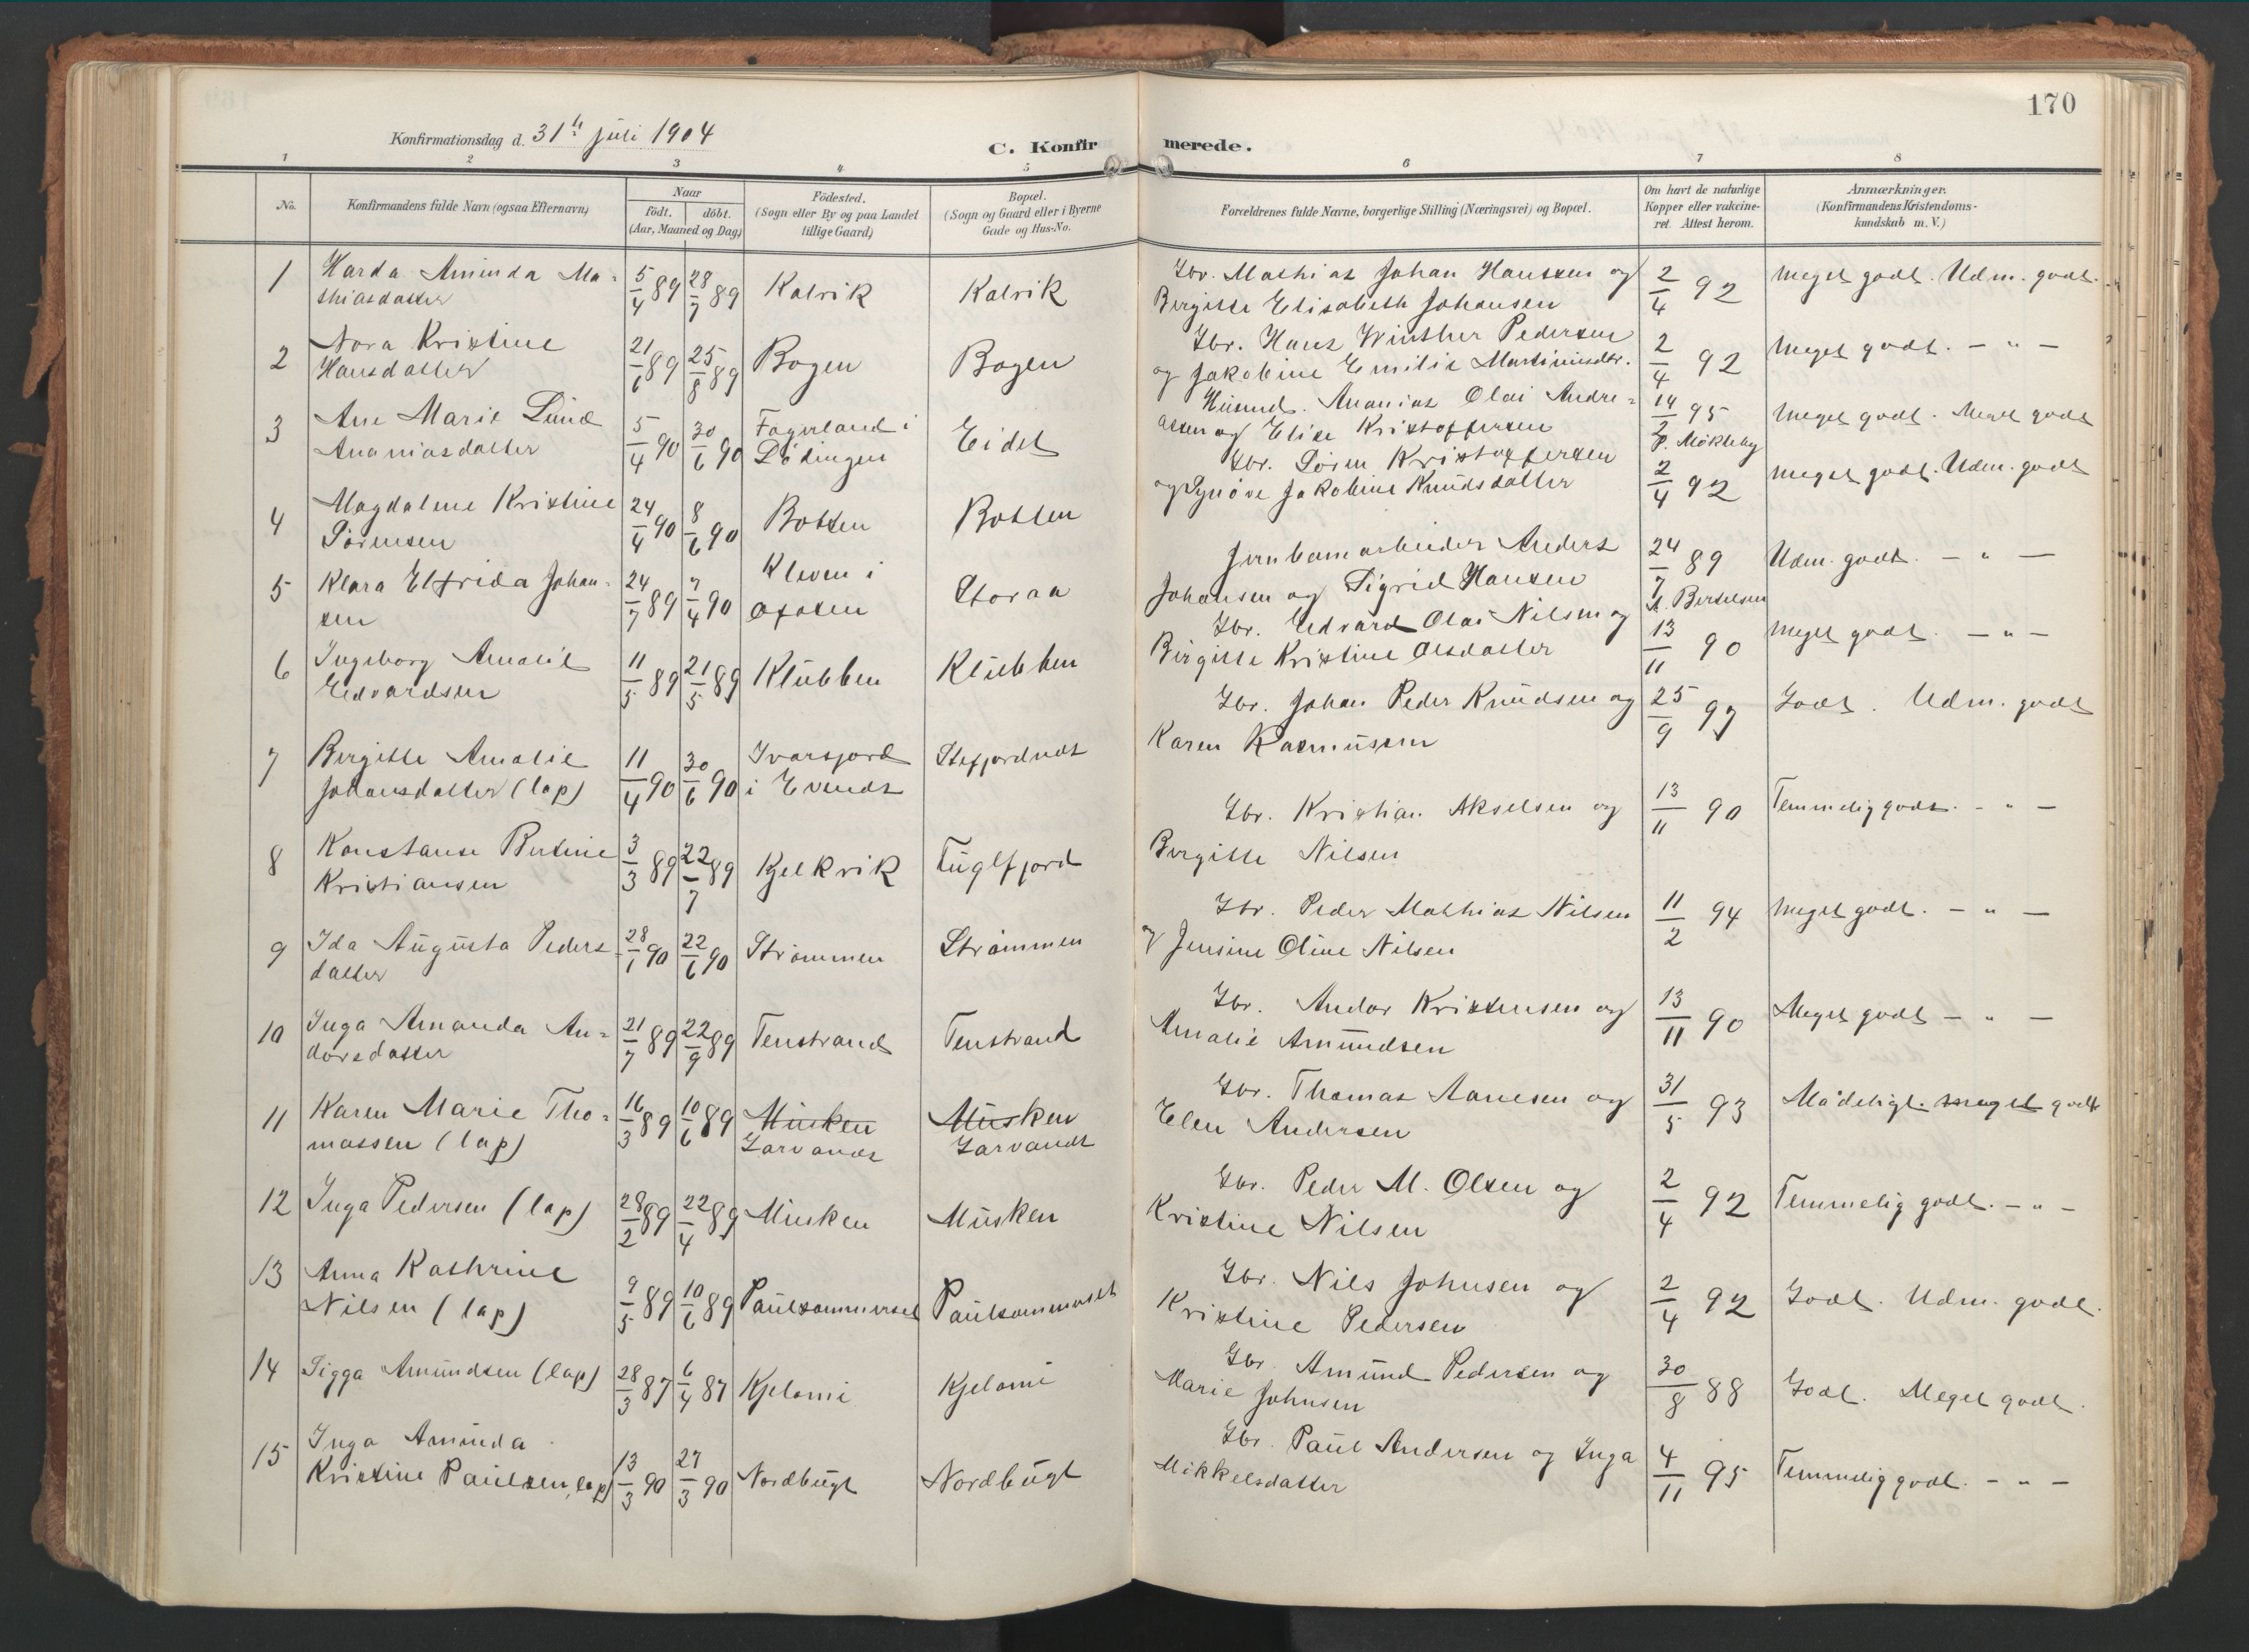 170
Konfirmationsdag d. 31te juli 1904
C. Konfirmerede.
1 2 3 4 5 6 7 8
No.
Konfirmandens fulde Navn (ogsaa Efternavn)
Naar
födt. döbt.
(Aar, Maaned og Dag)
Födested.
(Sogn eller By og paa Landet
tillige Gaard)
Bopæl.
(Sogn og Gaard eller i Byerne
Gade og Hus-No.
Forældrenes fulde Navne, borgerlige Stilling (Næringsvei) og Bopæl.
Om havt de naturlige
Kopper eller vakcine-
ret. Attest herom.
Anmærkninger.
(Konfirmandens Kristendoms-
kundskab m. V.)
1 Harda Aminda Ma-
thiasdatter 5/4 89 28/7 89 Kalvik Kalvik
Gbr. Mathias Johan Hanssen og
Bergitte Elisabeth Johansen 2/4 92 Meget godt. Udm. godt.
2 Nora Kristine
Hansdatter 21/6 89 25/8 89 Bogen Bogen
Gbr. Hans Winther Pedersen
og Jakobine Emilie Martinusdtr. 2/4 92 Meget godt. — " —
3 Ane Marie Lund
Ananiasdatter 5/4 90 30/6 90 Fagerland i
Lödingen Eidet
Husmd. Ananias Olai Andre-
assen og Elise Kristoffersen 14/7 95 P. Mökleby Meget godt. Meget godt
4 Magdalene Kristine
Sörensen 24/4 90 8/6 90 Botten Botten
Gbr. Sören Kristoffersen
og Synöve Jakobine Knudsdatter 2/4 92 Meget godt. Udm. godt
5 Klara Elfrida Johan-
sen 24/7 89 7/4 90 Kleven i
Ofoten Storaa
Jernbanearbeider Anders
Johansen og Sigrid Hansen 24/7 89 A. Bertelsen Udm. godt. — " —
6 Ingeborg Amalie
Edvardsen 11/5 89 21/5 89 Klubben Klubben
Gbr. Edvard Olai Nilsen og
Birgitte Kristine Olsdatter 13/11 90 Meget godt. — " —
7 Bergitte Amalie
Johansdatter (lap) 11/4 90 30/6 90 Ivarsfjord
i Evends Stefjordnæs
Gbr. Johan Peder Knudsen og
Karen Rasmussen 25/9 97 Godt. Udm. godt
8 Konstanse Bertine
Kristiansen 3/3 89 22/7 89 Kjelkvik Fuglfjord
Gbr. Kristian Akselsen og
Bergitte Nilsen 13/11 90 Temmelig godt. — " —
9 Ida Augusta Peders-
datter 28/1 90 22/6 90 Strömmen Strömmen
Gbr. Peder Mathias Nilsen
og Jensine Oline Nilsen 11/2 94 Meget godt. — " —
10 Inga Amanda An-
dorsdatter 21/7 89 22/9 89 Tenstrand Tenstrand
Gbr. Andor Kristensen og
Amalie Amundsen 13/11 90 Meget godt — " —
11 Karen Marie Tho-
massen (lap) 16/3 89 10/6 89 Musken
Garvands Musken
Garvands
Gbr. Thomas Aanesen og
Elen Andersen 31/5 93 Mådeligt. meget godt
12 Inga Pedersen (lap) 28/2 89 22/4 89 Musken Musken
Gbr. Peder M. Olsen og
Kristine Nilsen 2/4 92 Temmelig godt. — " —
13 Anna Kathrine
Nilsen (lap) 9/5 89 10/6 89 Paulsommerset Paulsommerset
Gbr. Nils Johnsen og
Kristine Pedersen 2/4 92 Godt. Udm. godt.
14 Sigga Amundsen (lap) 28/3 87 6/4 87 Kjelomi Kjelomi
Gbr. Amund Pedersen og
Marie Johnsen 30/8 88 Godt. Meget godt.
15 Inga Aminda
Kristine Paulsen, lap) 13/3 90 27/3 90 Nordbugt Nordbugt
Gbr. Paul Andersen og Inga
Mikkelsdatter 4/11 95 Temmelig godt. — " —